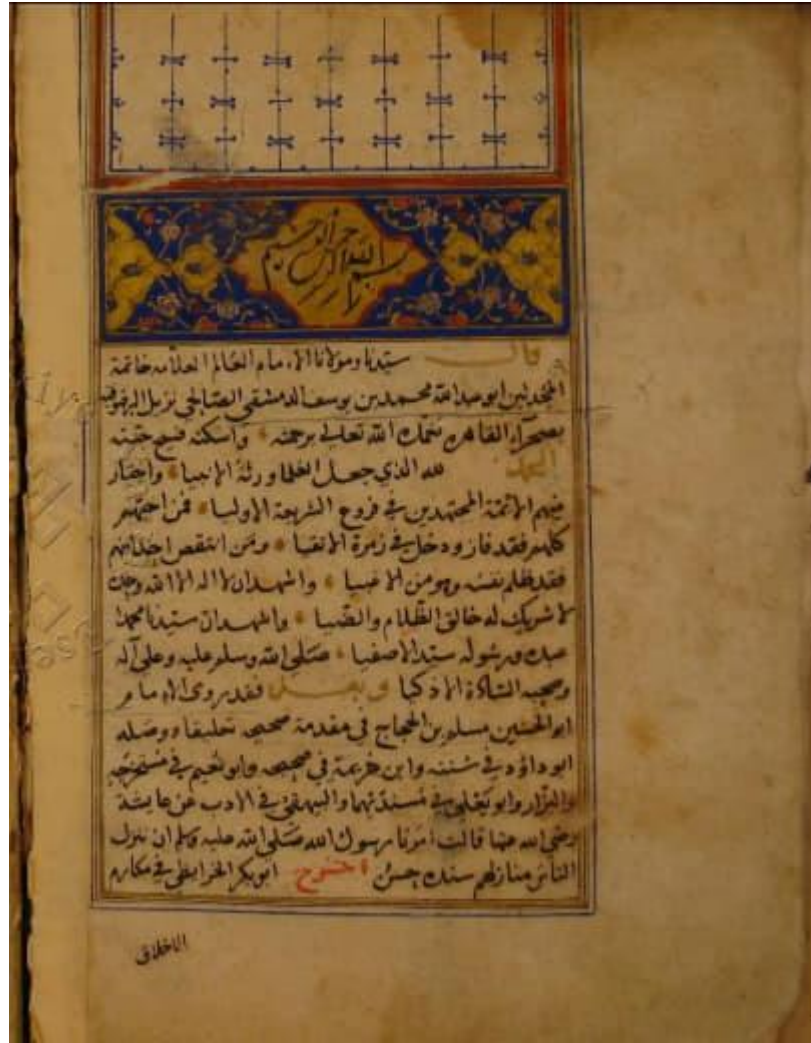 بسم الله الرحمن الرحيم
قال سيدنا ومولانا الامام العالم العلامة خاتمة
المحدثين ابو عبد الله محمد بن يوسف الدمشقي الصالحي نزيل البرقوقية
بصحراء القاهرة تغمده الله تعالى برحمته واسكنه فسيح جنته
الحمد لله الذي جعل العلما ورثة الانبيا واختار
منهم الائمة المجتهدين في فروع الشريعة الاوليا فمن احبهم
كلهم فقد فاز ودخل في زمرة الاتقيا ومن انتقص احدا منهم
فقد ظلم نفسه وهو من الاغبيا واشهد ان لا اله الا الله وحده
لا شريك له خالق الظلام والضيا واشهد ان سيدنا محمدا
عبده ورسوله سيد الاصفيا صلى الله وسلم عليه وعلى آله
وصحبه السادة الاذكيا وبعد فقد روى الامام
ابو الحسين مسلم بن الحجاج في مقدمة صحيحه تعليقا ووصله
ابو داؤد في سننه وابن خزيمة في صحيحه وابو نعيم في مستخرجه
والبزار وابو يعلى في مسنديهما والبيهقي في الادب عن عايشة
رضي الله عنها قالت امرنا رسول الله صلى الله عليه وسلم ان ننزل
الناس منازلهم سنده حسن ابو بكر الخرايطي في مكارم
الاخلاق